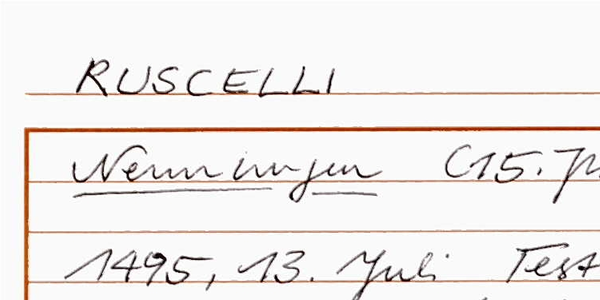 RUSCELLI
Nennungen (15. J
1495, 13. Juli Test